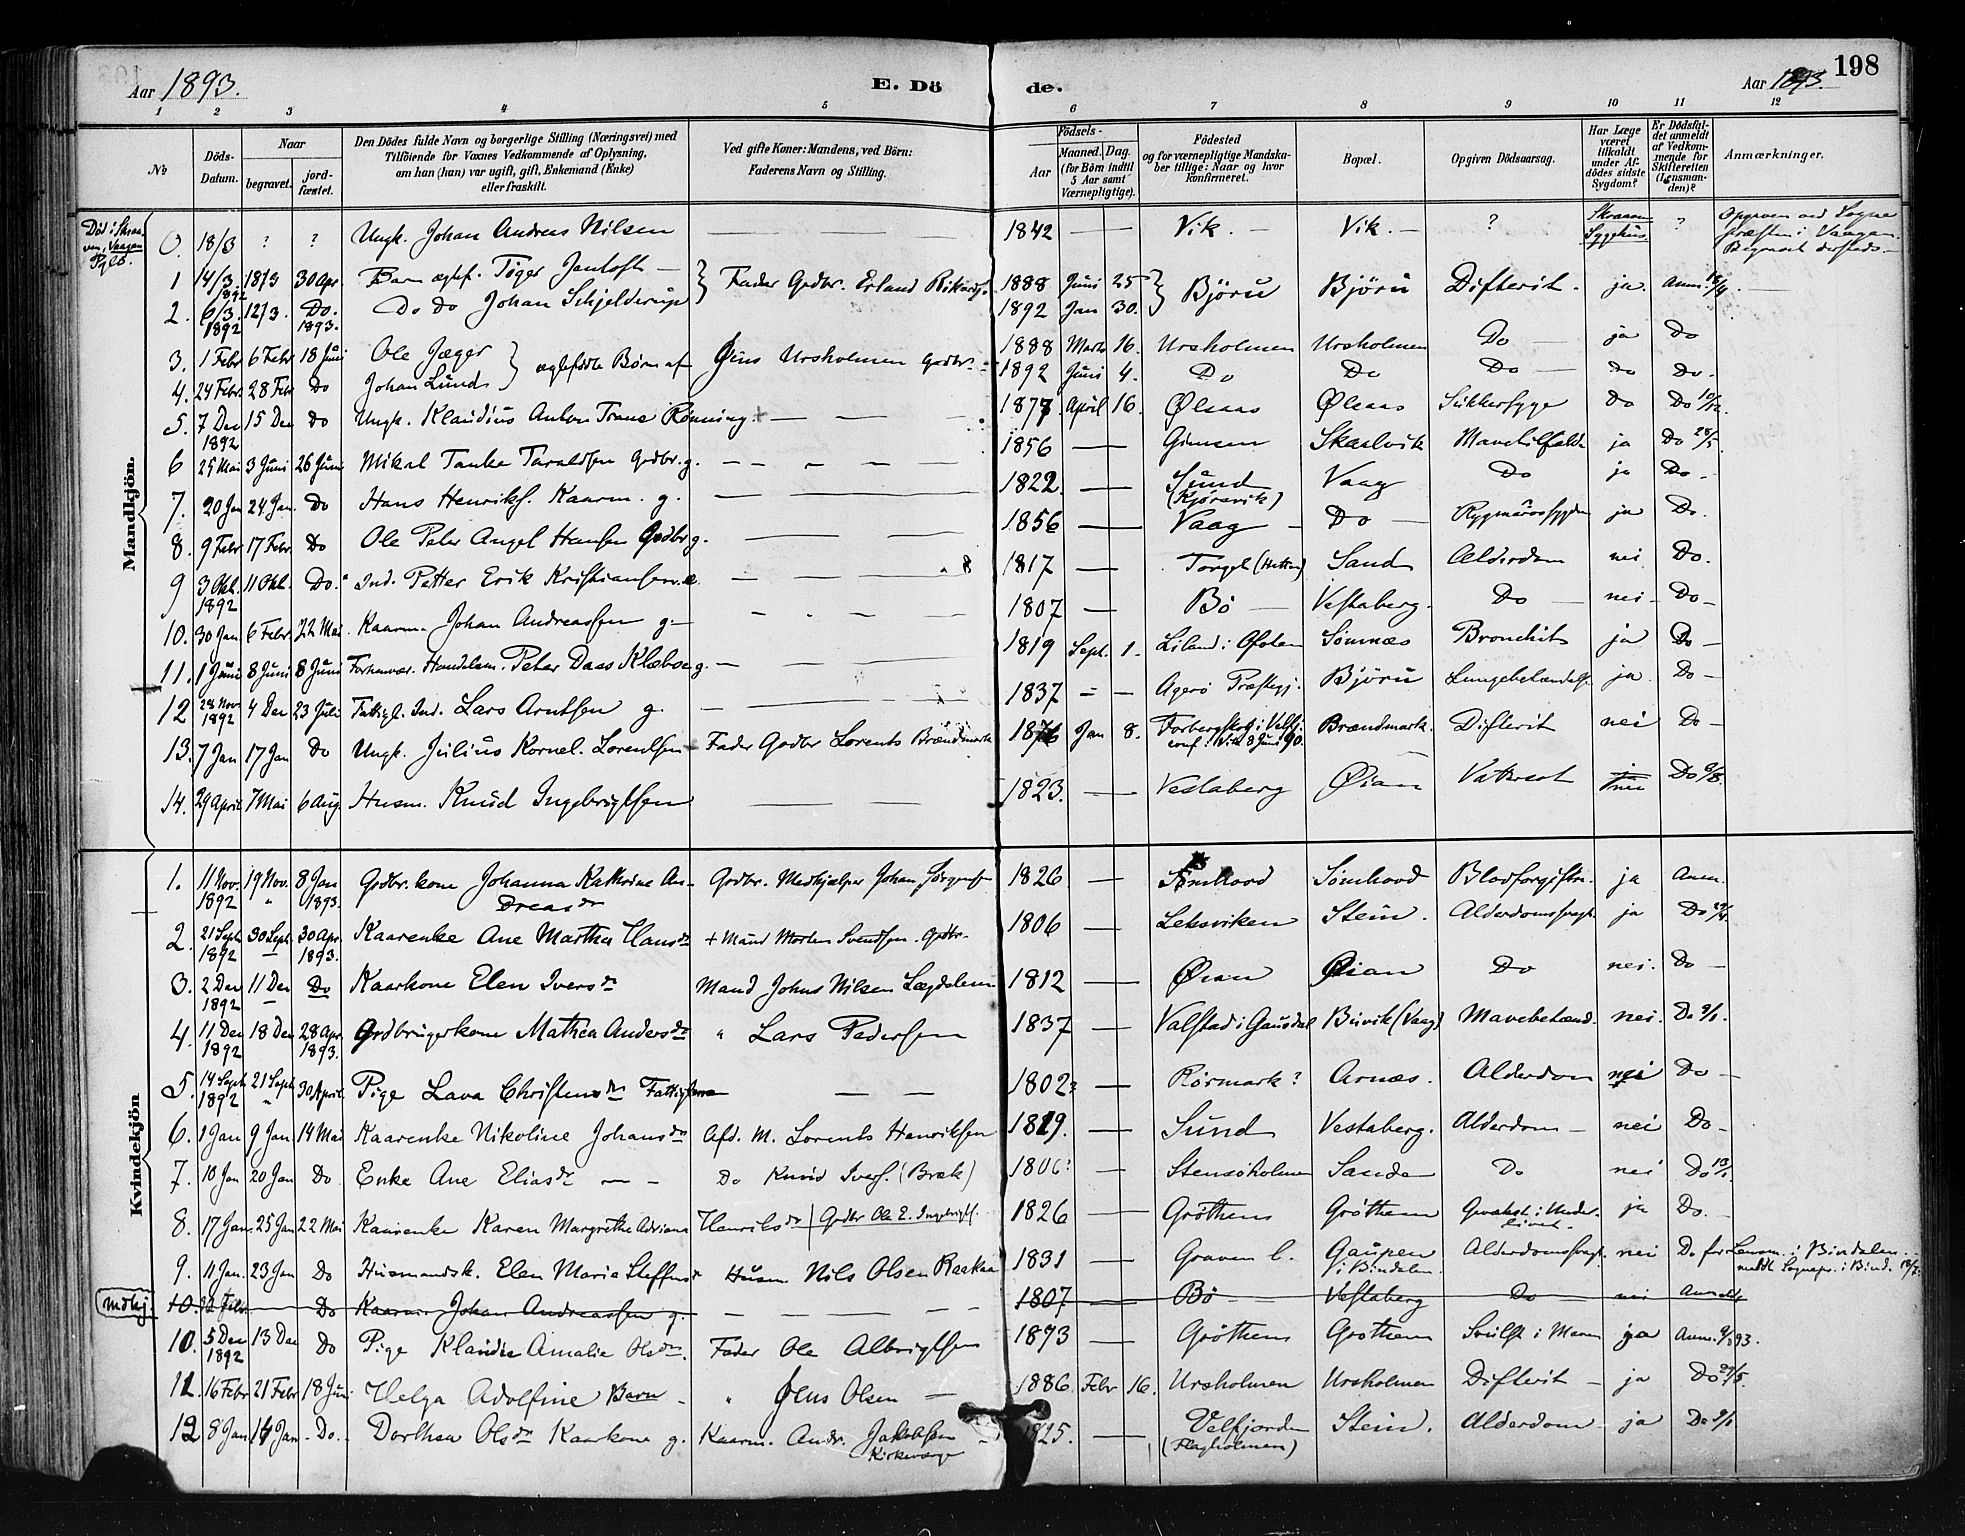 Aar 1893. E. Döde. Aar 1893. 198
1 2 3 4 5 6 7 8 9 10 11 12
No Döds-Datum. Naar begravet. jordfæstet. Den Dödes fulde Navn og borgerlige Stilling (Næringsvei) med Tilföiende for Voxnes Vedkommende af Oplysning, om han (hun) var ugift, gift, Enkemand (Enke) eller fraskilt. Ved gifte Koner: Mandens, ved Börn: Faderens Navn og Stilling. Födsels- Aar Maaned. Dag. (for Börn indtil 5 Aar samt Værnepligtige). Födested og for værnepligtige Mandskaber tillige: Naar og hvor konfirmeret. Bopæl. Opgiven Dödsaarsag. Har Læge været tilkaldt under Afdödes sidste Sygdom? Er Dödsfaldet anmeldt af Vedkommende for Skifteretten (Lensmanden)? Anmærkninger.
Mandkjön.
0. 18/3 ? ? Ungk. Johan Andreas Nilsen — 1842 — — Vik. — Vik. — ? Skraaven Sygehus ? Opgiven ved Sogne præsten i Vaagen. Begravet dersteds —
1 14/3 1892 18/3 30 Apr. Barn ægtef. Töger Jentoft — Fader Grdbr. Erland Rikards. 1888 Juni 25 Björu Björu Difterit. ja. Anm.
2. 6/3 1892 12/3. Do. 1893. Do Do Johan Schjelderup 1892 Jan 30.
3. 1 Febr 6 Febr 18 Juni Ole Jæger ægtefödte Börn af Jens Ursholmen Grdbr. 1888 Marts 16. Ursholmen Ursholmen Do — ja Do
4. 24 Febr. 28 Febr Do Johan Lund 1892 Juni 4. Do Do Do — Do Do.
5. 7 Dec 1892 15 Dec Do Ungk. Klaudius Anton Trane Rönning. — — — 1877 April 16. Ølsaas Ølsaas Sukkersyge Do Do
6 25 Mai 3 Juni 26 Juni Mikal Tanke Taraldsen Grdbr. g. — — — 1856 — Gimsen Skarlvik ja Do
7. 20 Jan 24 Jan. Do Hans Henriks. Kaarm. g. — — 1822. — Sund (Kjöravik) Vaag Do ja Do.
8. 9 Febr 17 Febr. Do Ole Peter Angel Hansen Grdbr g. — — 1856 — Vaag — Do — Rygmarvssygdom ja Do.
9 3 Okt. 1892 11 Okt. Do. Ind. Petter Erik Kristiansen. e. — — 1817 — Torget Sand Alderdom nei Do.
10. 30 Jan 6 Febr. 22 Mai. Kaarm. Johan Andreassen g — — — 1807 — Bö — Vestaberg. Do — nei — Do —
11. 1 Juni 8 Juni 8 Juni Forhenvær. Handelsm. Peter Daas Klæboe g. — — — 1819 Sept. 1. Liland i Ofoten Sömnæs Bronchit ja Do —
12 28 Nov. 1892 4 Dec 23 Juli Fattigl. Ind. Lars Arntsen g. — — 1837 — — Agerö Præstegj. Björu Lungebetændelse ja Do —
13. 7 Jan 17 Jan Do Ungk. Julius Kornel. Lorentsen Fader Grdbr Lorents Brændmark 1876 Jan 8. conf. i Vik 8 Juni 90. Brændmark. Difterit nei Do —
14. 29 April 7 Mai 6 Aug. Husm. Knud Ingebrigtsen — — 1823. — Vestaberg Øian Vattersot ja nei Do
Kvindekjön
1. 11 Nov. 1892 19 Nov. 8 Jan 1893. Grdbr. kone Johanna Kathrine Andreasdr Grdbr. Medhjælper Johan Jörgensen 1826 — Sömhovd Sömhovd Blodforgiftn. ja Anm.
2. 21 Sept 1892 30 Sept 30 Apr. 1893. Kaarenke Ane Martha Hansdr + Mand Morten Svendsen. Grdbr. 1806 — Leksviken Stein. Alderdomssvagh. ja Do
3. 2 Dec 1892 11 Dec Do Kaarkone Elen Iversdr Mand Johns Nilsen Lægdslem 1812 — Øian Øian Do nei. Do —
4. 11 Dec 1892 18 Dec 28 Apr. 1893. Grdbrugerkone Mathea Andersdr " Lars Pedersen 1837 — Valstad i Gausdal Buvik (Vaag) Mavebetænd. nei. Do
5. 14 Sept 1892 21 Sept 30 April. Pige Lava Christensdr Fattiglem — — 1802? — Rörmark? Arnæs. Alderdom nei Do —
6. 1 Jan 9 Jan 14 Mai Kaarenke Nikoline Johansdr Afd. M. Lorents Henriksen 1819. — Sund Vestaberg. Alderdom — nei Do —
7. 10 Jan 20 Jan Do Enke Ane Eliasdr — — Do Knud Ivers. (Bræk) 1806? — Stensöholmen Sanden Do nei Do
8. 17 Jan. 25 Jan 22 Mai Kaarenke Karen Margrethe Adriana Henriksdr Grdbr Ole E. Ingebrigts. 1826 — Gröthem Gröthem Gevækst i Underlivet. ja Do. —
9. 11 Jan. 23 Jan Do Husmandsk. Elen Maria Steffensdr Husm Nils Olsen Kaakaa 1831 — Graven l. Gaupen i Bindalen. Alderdomssvagh. nei Do for Lensm. i Bindalen.
Mdkj. 10. Febr. Do Kaarm. Johan Andreassen g. — — — 1807 — Bö — Vestaberg Do nei Anmeldt
10. 5 Dec 1892 13 Dec Do Pige Klaudia Amalie Olsdr. Fader Ole Albrigtsen 1873 — Gröthem Gröthem Svulst i Maven ja Anm.
11. 16 Febr 21 Febr 18 Juni Helga Adolfine Barn — " Jens Olsen — 1886 Febr 16. Ursholmen Ursholmen Difterit — ja Do
12 8 Jan 14 Jan — Do. Dorthea Olsdr Kaarkone g. Kaarm. Andr. Jakobsen Kirkeværge 1825. — Velfjorden (Flagholmen) Stein. Alderdom ja Do